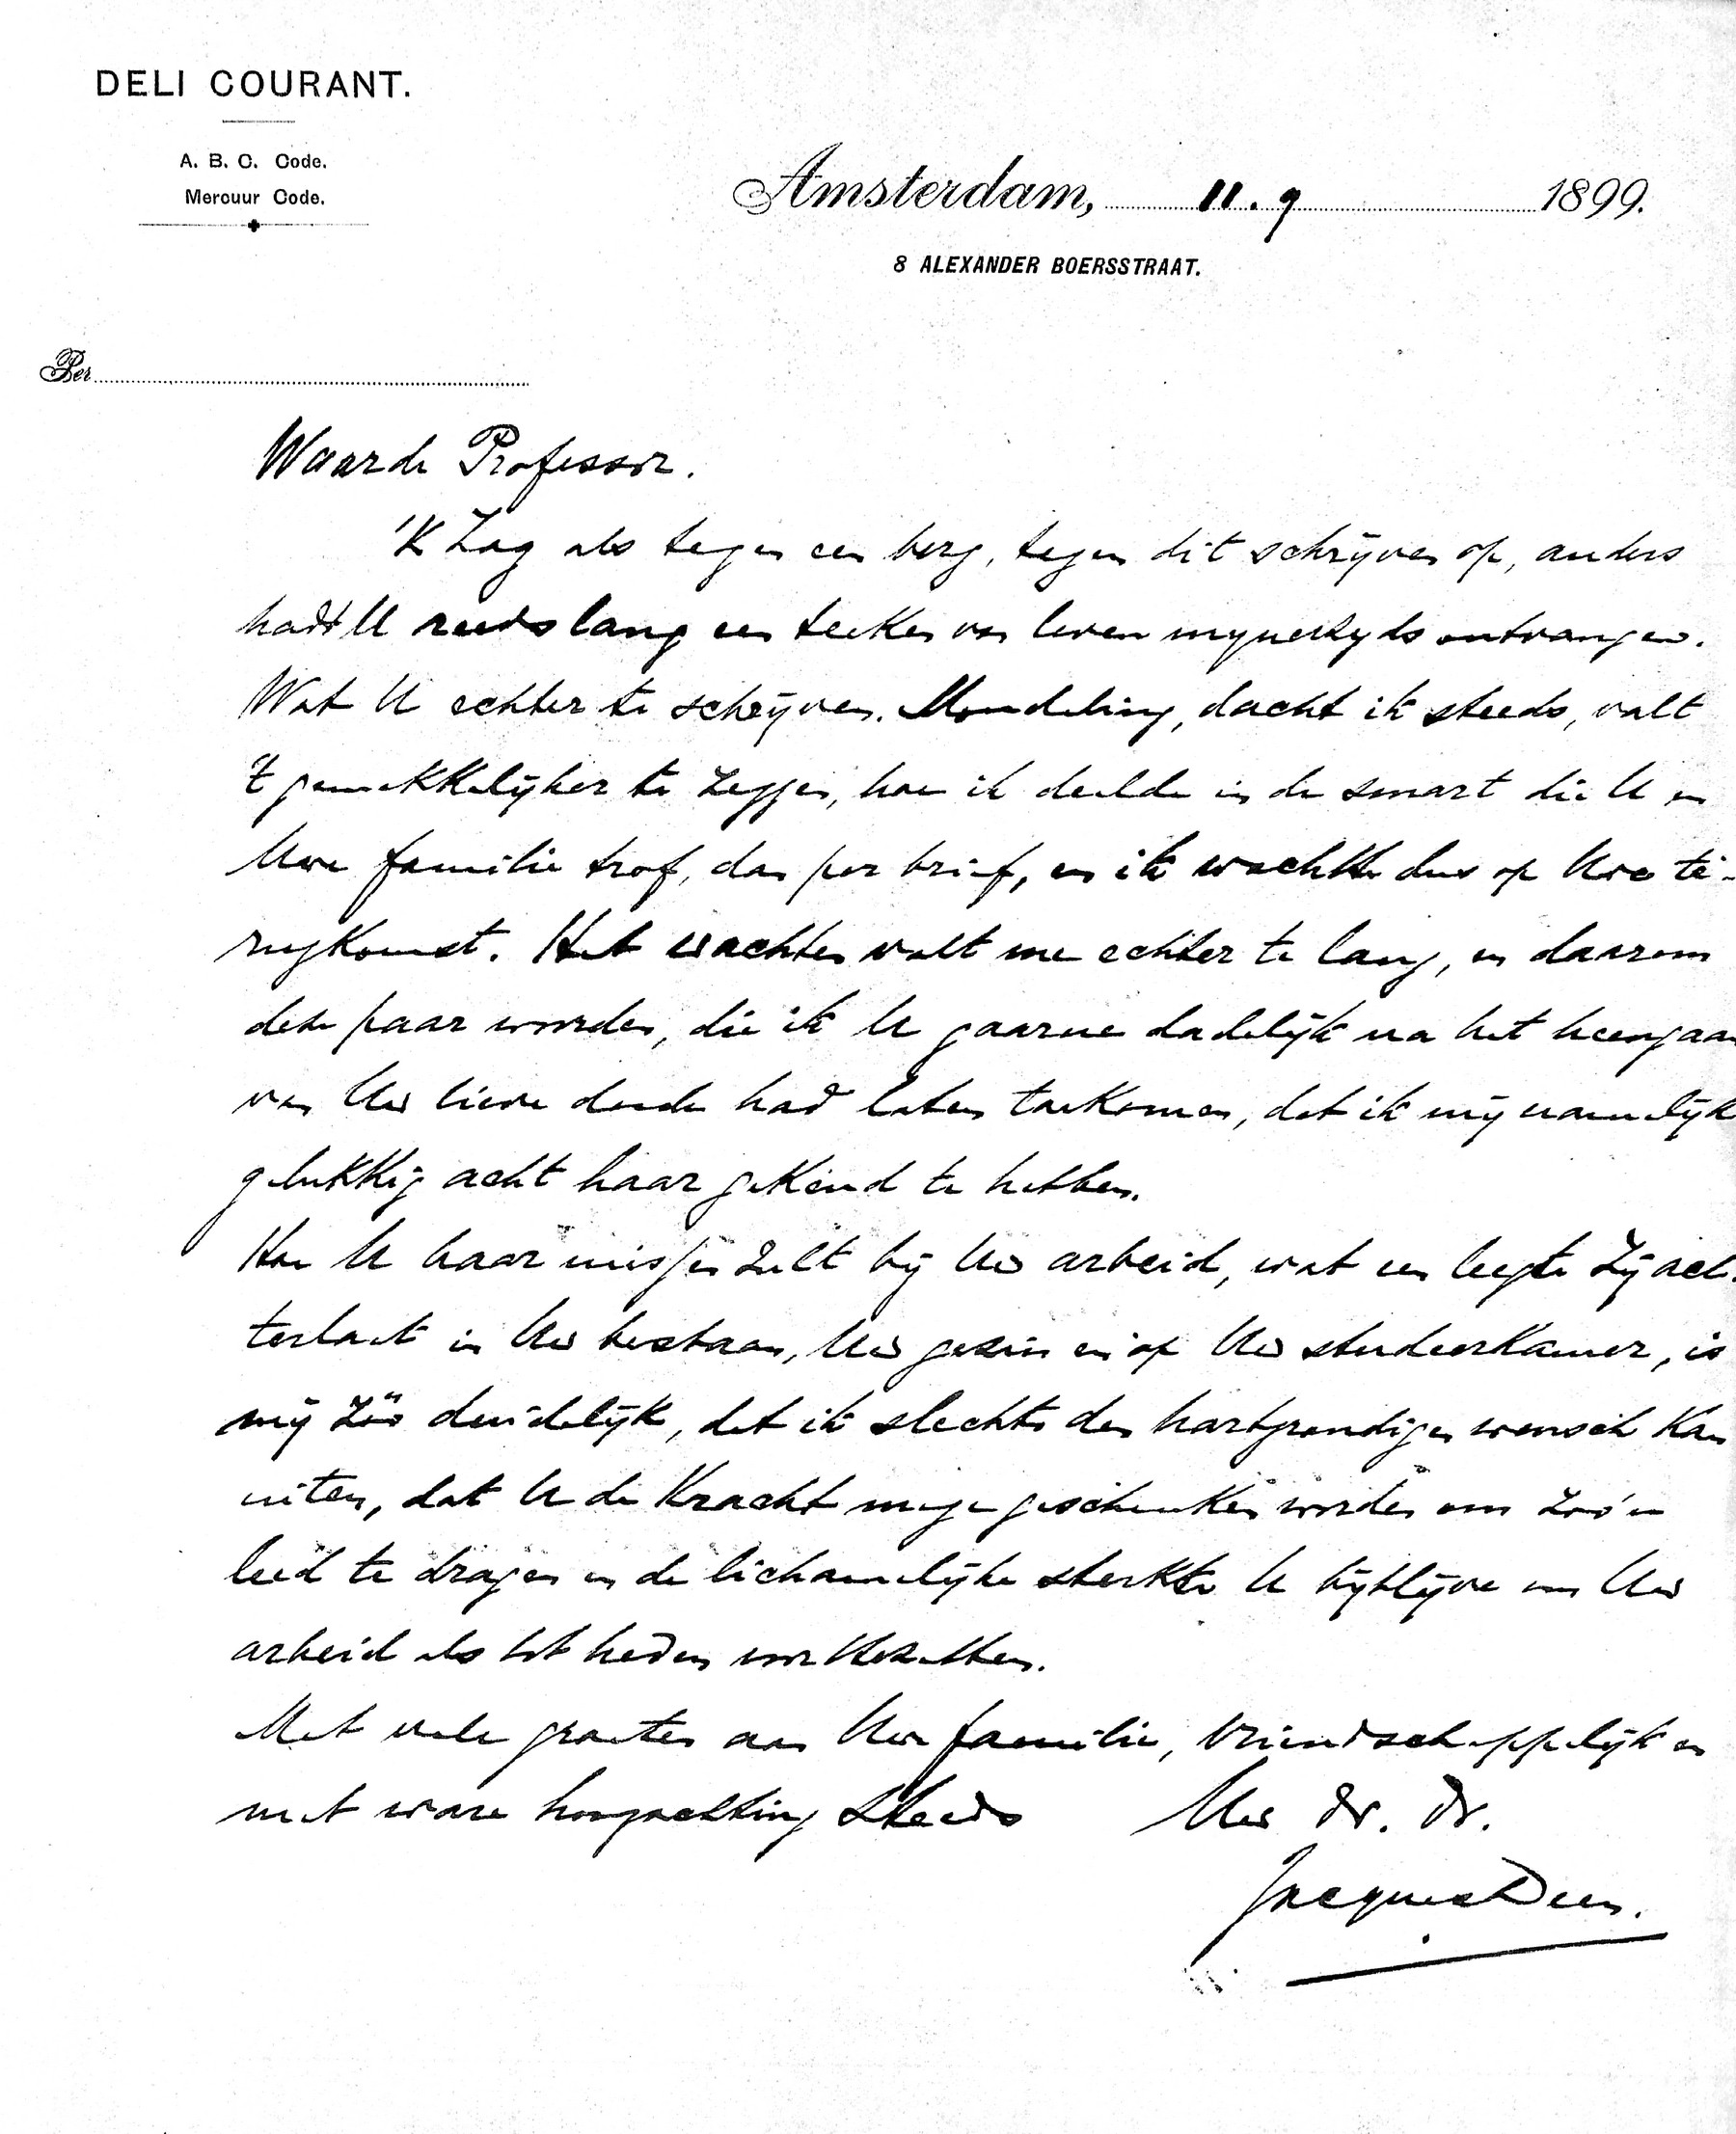 DELI COURANT.
A. B. C. Code.
Mercuur Code.
Amsterdam, 11.9 1899.
8 ALEXANDER BOERSSTRAAT.
Per
Waarde Professor.
'K Zag als tegen een berg, tegen dit schrijven op, anders
hadt U reeds lang een teeken van leven mijnerzijds ontvangen.
Wat U echter te schrijven. Mondeling, dacht ik steeds, valt
't gemakkelijker te zeggen, hoe ik deelde in de smart die U en
Uwe familie trof, dan per brief, en ik wachtte dus op Uwe te-
rugkomst. Het wachten valt me echter te lang, en daarom
deze paar woorden, die ik U gaarne dadelijk na het heengaan
van Uw lieve doode had laten toekomen, dat ik mij namelijk
gelukkig acht haar gekend te hebben.
Hoe U haar missen zult bij Uw arbeid, wat een leegte zij ach-
terlaat in Uw bestaan, Uw gezin en op Uw studeerkamer, is
mij zóó duidelijk, dat ik slechts den hartgrondigen wensch kan
uiten, dat U de kracht moge geschonken worden om zoo'n
leed te dragen en de lichamelijke sterkte U bijblijve om Uw
arbeid als tot heden voortezetten.
Met vele groeten aan Uw familie, vriendschappelijk en
met ware hoogachting steeds Uw dr. dr.
Jacques Deen.